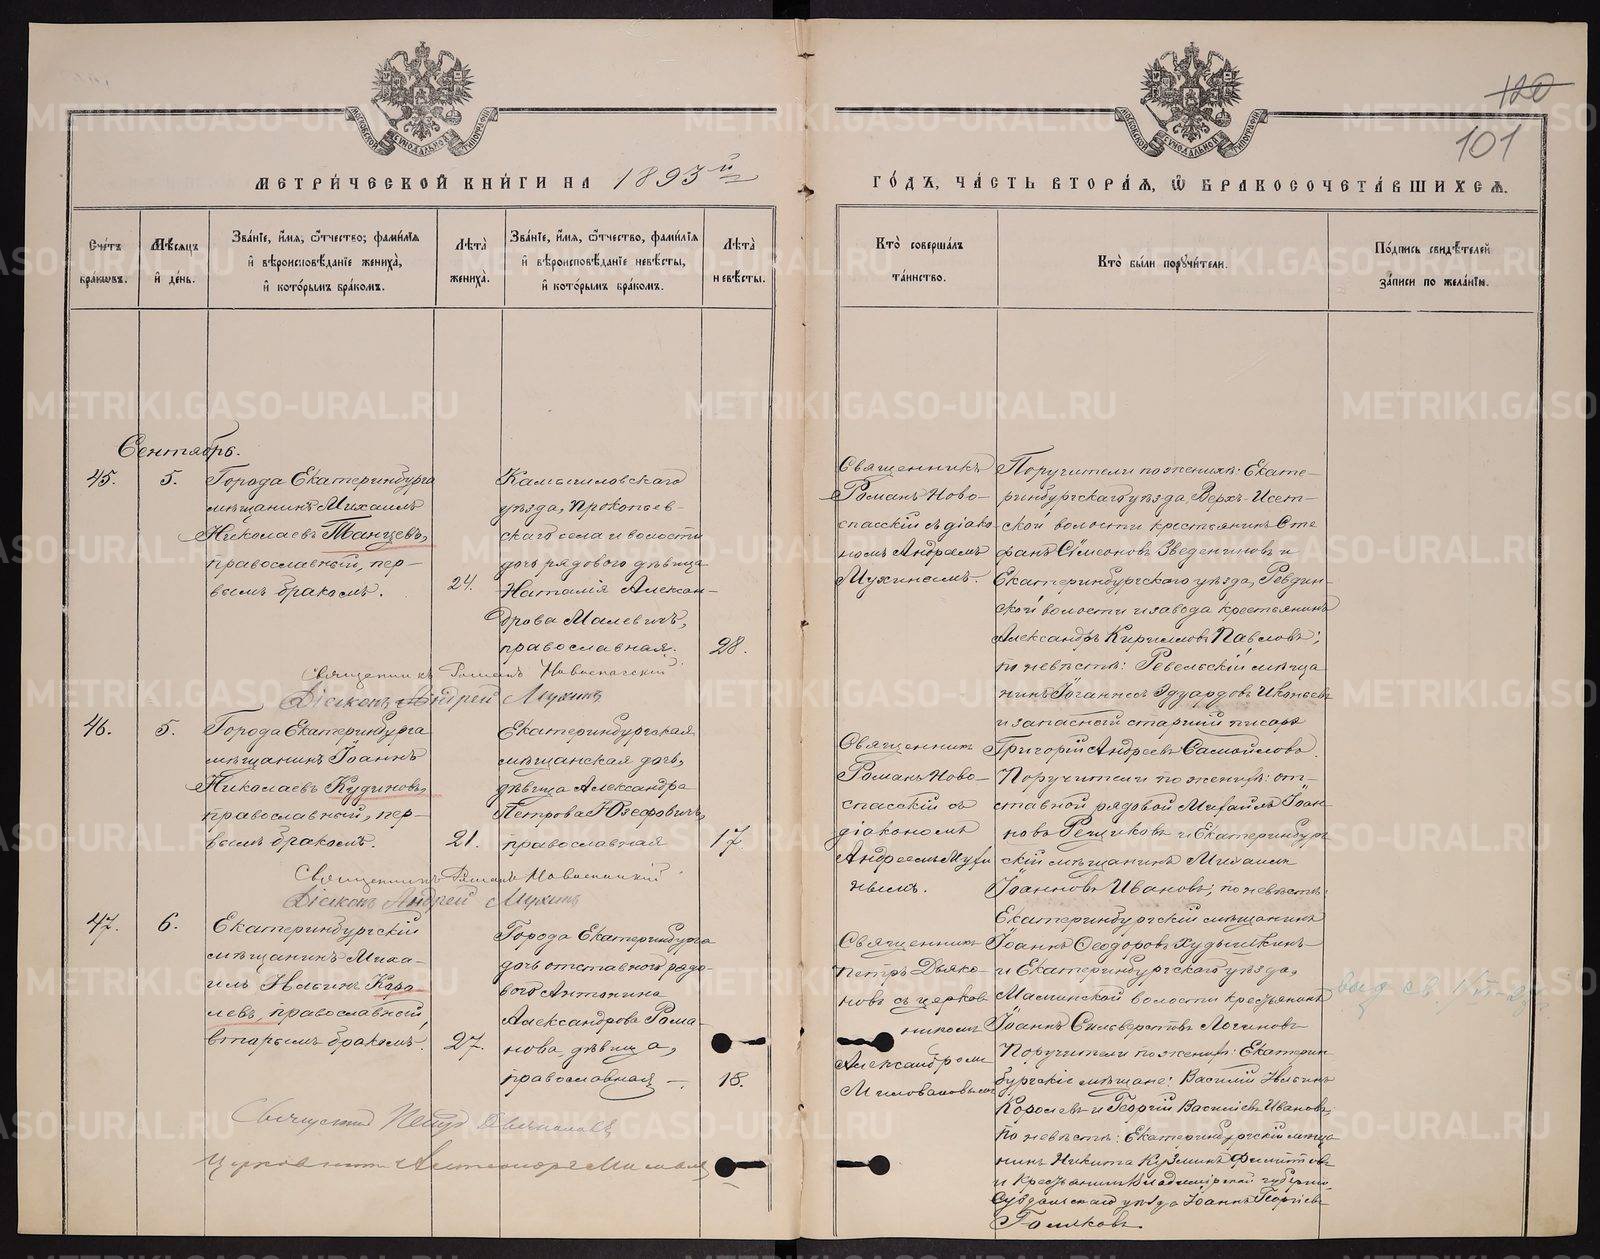 120
101
МОСКОВСКОЙ СѴНОДАЛЬНОЙ ТИПОГРАФІИ
МОСКОВСКОЙ СѴНОДАЛЬНОЙ ТИПОГРАФІИ
МЕТРИ́ЧЕСКОЙ КНИ́ГИ НА 1893й
ГО́ДЪ, ЧА́СТЬ ВТОРА́Ѧ, Ѽ БРАКОСОЧЕТА́ВШИХСѦ.
Сче́тъ бра́кѡвъ.
Мѣ́сѧцъ и҆ де́нь.
Зва́нїе, и҆́мѧ, ѻ҆́тчество, фами́лїѧ и҆ вѣроисповѣ́данїе жениха̀, и҆ кото́рымъ бра́комъ.
Лѣта̀ жениха̀.
Зва́нїе, и҆́мѧ, ѻ҆́тчество, фами́лїѧ и҆ вѣроисповѣ́данїе невѣ́сты, и҆ кото́рымъ бра́комъ.
Лѣта̀ невѣ́сты.
Кто̀ соверша́лъ та́инство.
Кто̀ бы́ли порꙋчи́тели.
По́дпись свидѣ́телей за́писи по жела́нїю.
Сентябрь.
45.
5.
Города Екатеринбурга
мѣщанинъ Михаилъ
Николаевъ Танцевъ,
православный, пер-
вымъ бракомъ.
24.
Камышловскаго
уѣзда, Прокопьев-
скаго села и волости
дочь рядового дѣвица
Наталія Алексан-
дрова Малевичъ,
православная.
28.
Священникъ
Романъ Ново-
спасскій съ діако-
номъ Андреемъ
Мухинымъ.
Поручители по женихѣ: Екате-
ринбургскаго уѣзда, Верх-Исет-
ской волости крестьянинъ Сте
фанъ Сѵмеоновъ Зведенчиновъ и
Екатеринбургскаго уѣзда, Ревдин-
ской волости и завода крестьянинъ
Александръ Кирилловъ Павловъ;
по невѣстѣ: Ревельскій мѣща
нинъ Іоганнесъ Эдуардовъ
и запасный старшій писарь
Григорій Андреевъ Самойловъ.
Священникъ Романъ Новоспасскій
Діаконъ Андрей Мухинъ
46.
5.
Города Екатеринбурга
мѣщанинъ Іоаннъ
Николаевъ Кудиновъ,
православный, пер-
вымъ бракомъ.
21.
Екатеринбургская
мѣщанская дочь,
дѣвица Александра
Петрова Юзефовичъ,
православная
17.
Священникъ
Романъ Ново-
спасскій съ
діакономъ
Андреемъ Мухи
нымъ.
Поручители по женихѣ: от-
ставной рядовой Михаилъ Іоан-
новъ Рещиковъ и Екатеринбург
скій мѣщанинъ Михаилъ
Іоанновъ Ивановъ; по невѣстѣ:
Екатеринбургскій мѣщанинъ
Іоаннъ Ѳеодоровъ Худышкинъ
и Екатеринбургскаго уѣзда,
Маминской волости крестьянинъ
Іоаннъ Сильверстовъ Логиновъ
Священникъ Романъ Новоспасскій
Діаконъ Андрей Мухинъ
47.
6.
Екатеринбургскій
мѣщанинъ Миха-
илъ Ильинъ Коро-
левъ, православный,
вторымъ бракомъ.
27.
Города Екатеринбурга
дочь отставного рядо-
вого Антонина
Александрова Рома-
нова, дѣвица,
православная
18.
Священникъ
Петръ Дьяко-
новъ съ церков
никомъ
Александромъ
Миловановымъ
Поручители по женихѣ: Екатерин
бургскіе мѣщане: Василій Ильинъ
Королевъ и Георгій Васильевъ Ивановъ,
по невѣстѣ: Екатеринбургскій мѣща
нинъ Никита Кузминъ Филиповъ
и крестьянинъ Владимірской губерніи,
Суздальскаго уѣзда Іоаннъ Георгіевъ
Голяковъ.
Священникъ Петръ Дьяконовъ
METRIKI.GASO-URAL.RU